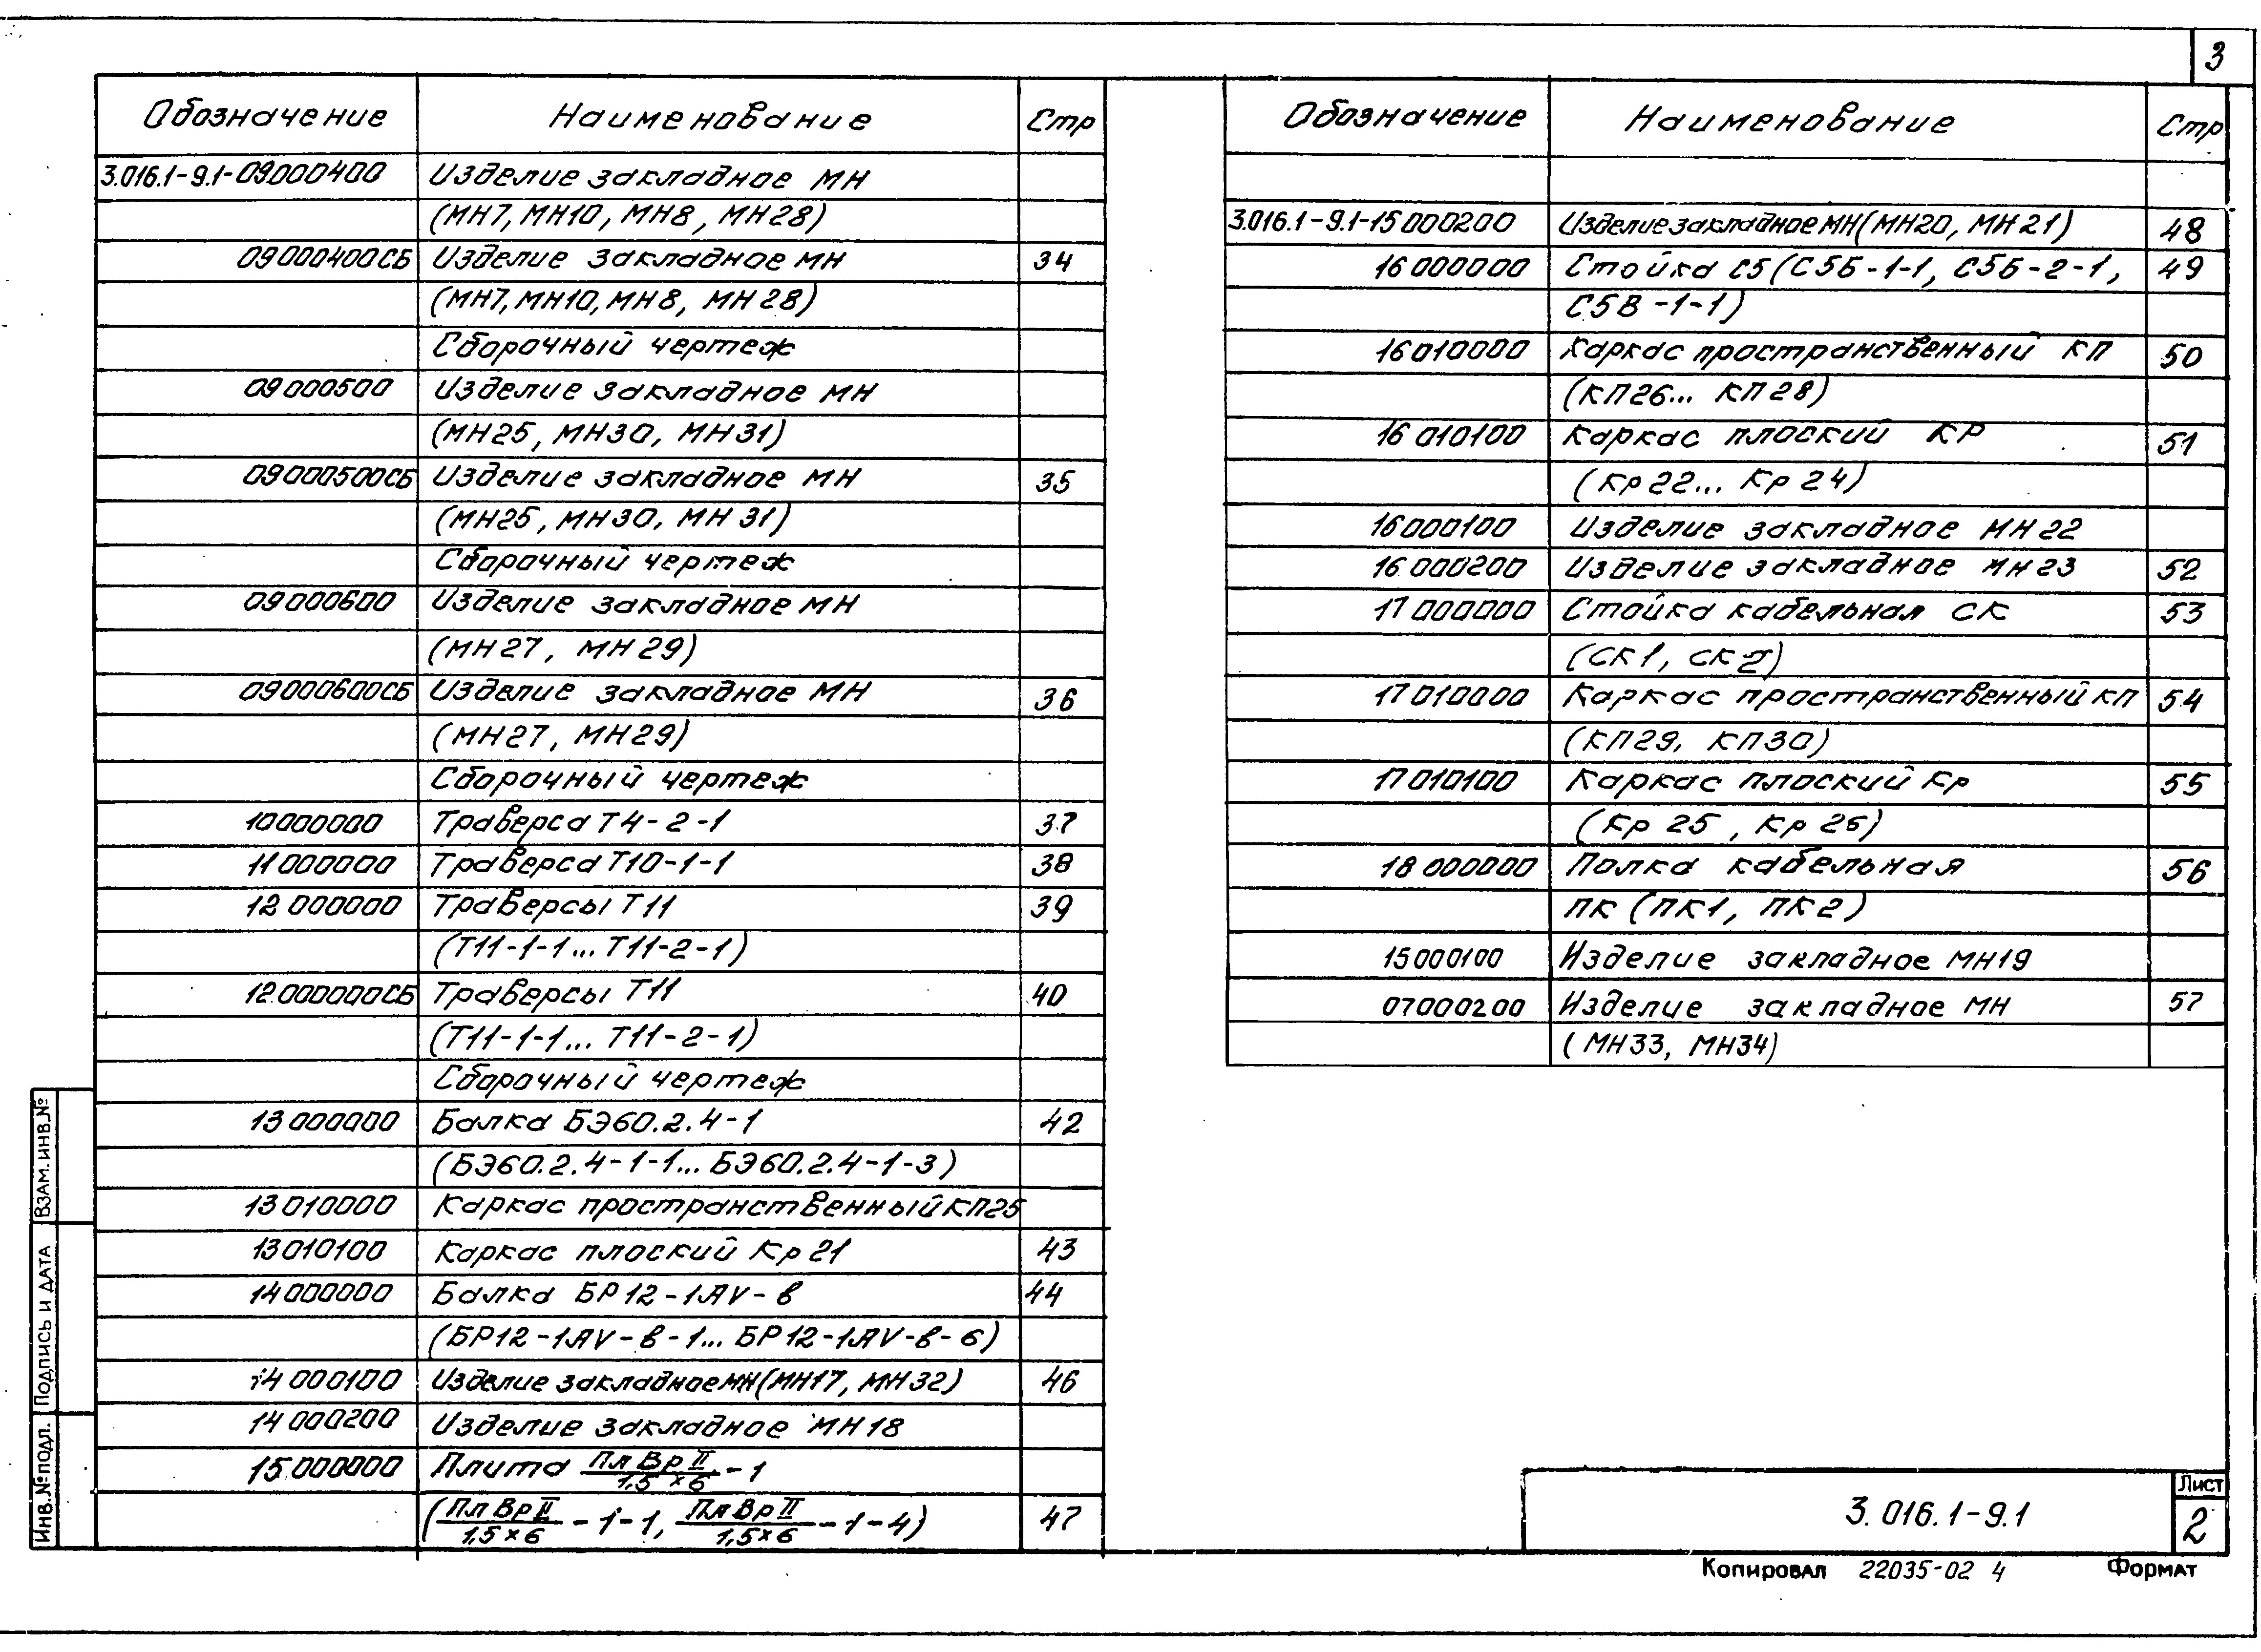 3
Обозначение Наименование Стр
3.016.1-9.1-09000400 Изделие закладное МН
(МН7, МН10, МН8, МН28)
09000400СБ Изделие закладное МН 34
(МН7, МН10, МН8, МН28)
Сборочный чертеж
09000500 Изделие закладное МН
(МН25, МН30, МН31)
09000500СБ Изделие закладное МН 35
(МН25, МН30, МН31)
Сборочный чертеж
09000600 Изделие закладное МН
(МН27, МН29)
09000600СБ Изделие закладное МН 36
(МН27, МН29)
Сборочный чертеж
10000000 Траверса Т4-2-1 37
11000000 Траверса Т10-1-1 38
12000000 Траверсы Т11 39
(Т11-1-1... Т11-2-1)
12000000СБ Траверсы Т11 40
(Т11-1-1... Т11-2-1)
Сборочный чертеж
13000000 Балка БЭ60.2.4-1 42
(БЭ60.2.4-1-1... БЭ60.2.4-1-3)
13010000 Каркас пространственный КП25
13010100 Каркас плоский Кр21 43
14000000 Балка БР12-1АV-в 44
(БР12-1АV-в-1... БР12-1АV-в-6)
14000100 Изделие закладное МН(МН17, МН32) 46
14000200 Изделие закладное МН18
15000000 Плита Пл Вр II / 1,5×6 -1
(Пл Вр II / 1,5×6 -1-1, Пл Вр II / 1,5×6 -1-4) 47
Обозначение Наименование Стр
3.016.1-9.1-15000200 Изделие закладное МН(МН20, МН21) 48
16000000 Стойка С5(С5Б-1-1, С5Б-2-1, 49
С5В-1-1)
16010000 Каркас пространственный КП 50
(КП26... КП28)
16010100 Каркас плоский КР 51
(Кр22... Кр24)
16000100 Изделие закладное МН22
16000200 Изделие закладное МН23 52
17000000 Стойка кабельная СК 53
(СК1, СК2)
17010000 Каркас пространственный КП 54
(КП29, КП30)
17010100 Каркас плоский Кр 55
(Кр25, Кр26)
18000000 Полка кабельная 56
ПК (ПК1, ПК2)
15000100 Изделие закладное МН19
07000200 Изделие закладное МН 57
(МН33, МН34)
Взам.инв.№
Подпись и дата
Инв.№подл.
3.016.1-9.1
Лист
2
Копировал 22035-02 4 Формат